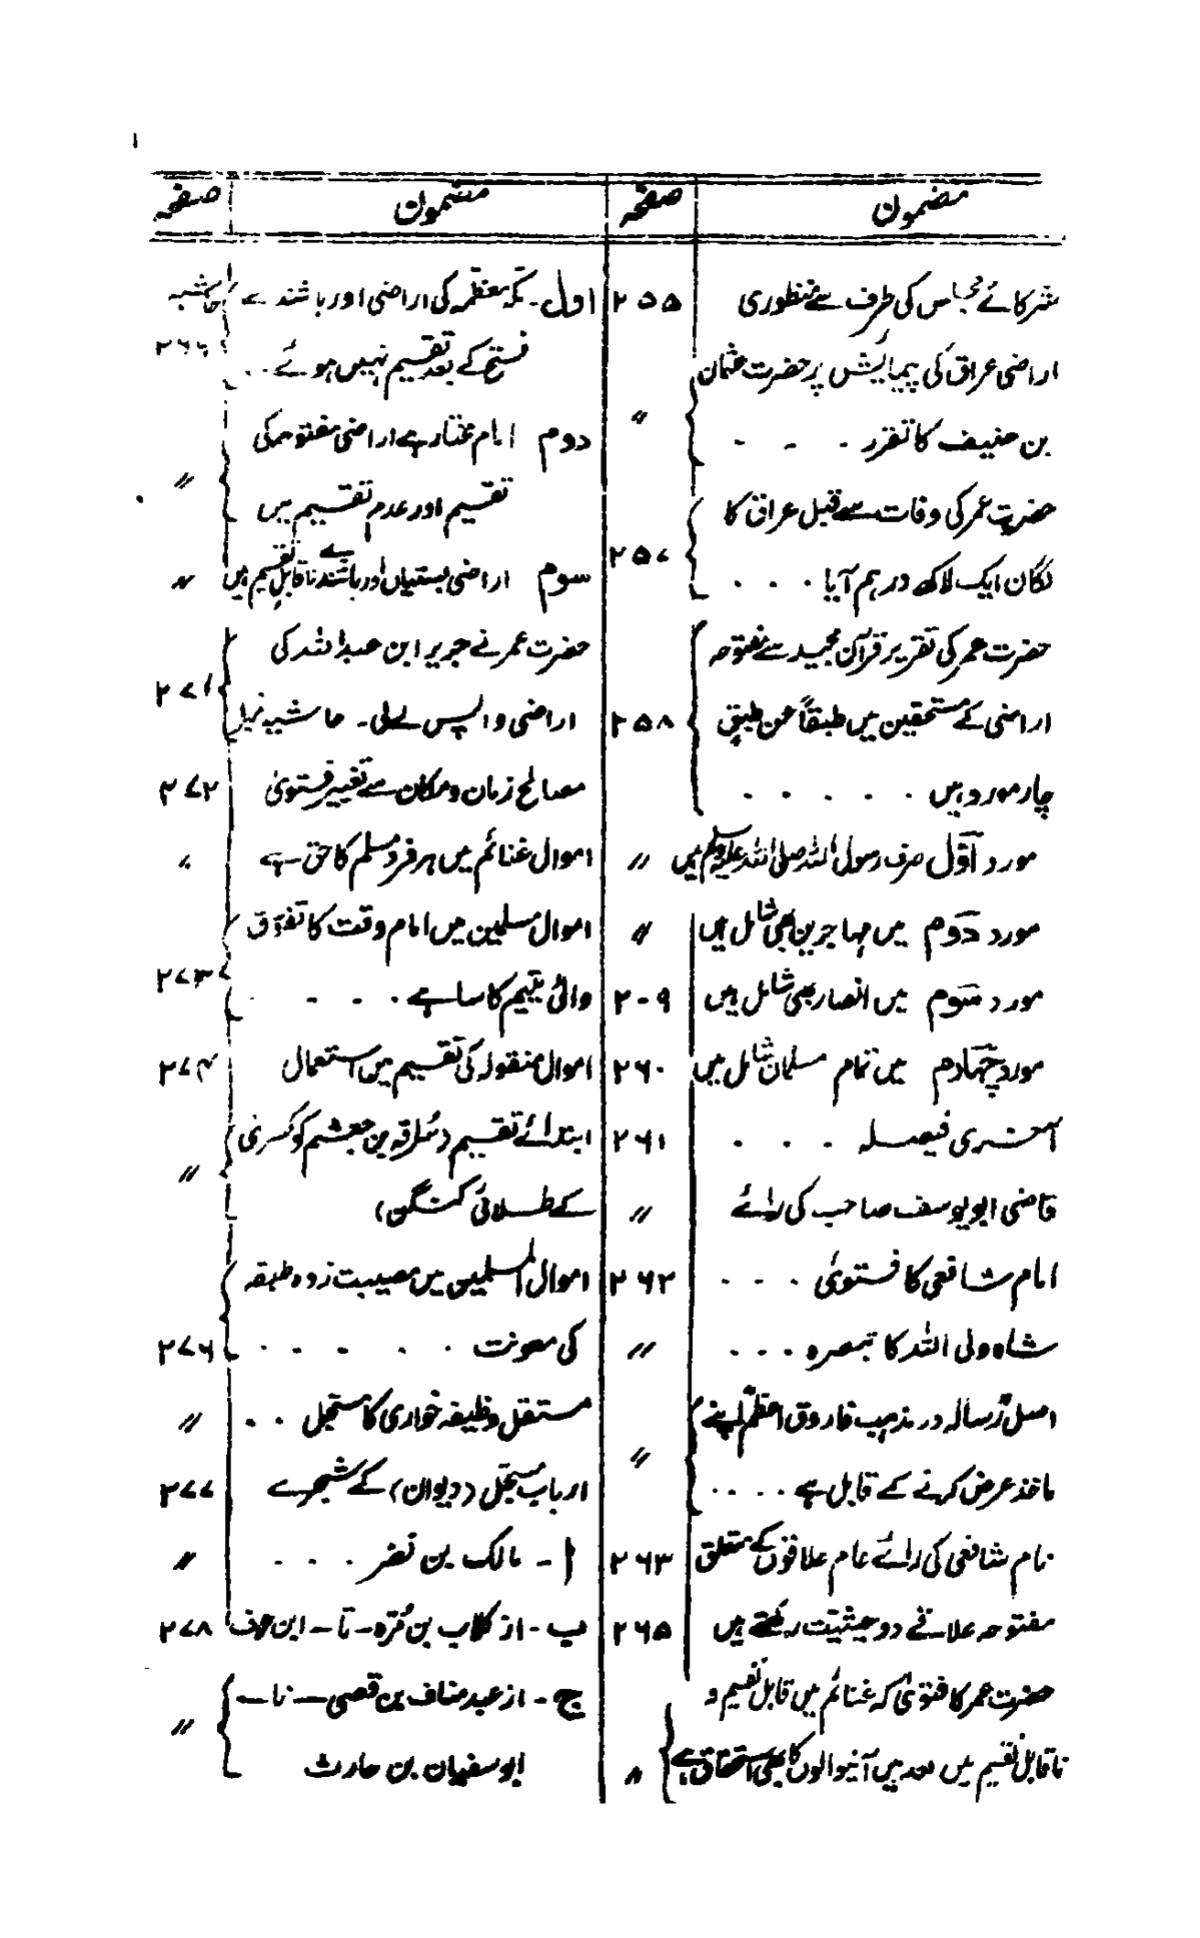 مضمون صفحہ
شرکائے مجلس کی طرف سے منظوری ۲۵۵
اراضی عراق کی پیمایش پر حضرت عثمان
بن حنیف کا تقرر . - - 〃
حضرت عمر کی وفات سے قبل عراق کا
لگان ایک لاکھ درہم آیا . . . . ۲۵۷
حضرت عمر کی تقریر قرآن مجید سے مفتوحہ
اراضی کے مستحقین میں طبقاً عن طبقٍ ۲۵۸
چار مورد ہیں . . . . . .
مورد اوّل صرف رسول اللہ صلی اللہ علیہ وسلم ہیں 〃
مورد دوم میں مہاجرین بھی شامل ہیں 〃
مورد سوم میں انصار بھی شامل ہیں ۲۰۹
مورد چہارم میں تمام مسلمان شامل ہیں ۲۶۰
آخری فیصلہ . . . . ۲۶۱
قاضی ابو یوسف صاحب کی رائے 〃
امام شافعی کا فتویٰ . - - - ۲۶۲
شاہ ولی اللہ کا تبصرہ . . . . 〃
اصل رسالہ در مذہب فاروق اعظم اپنے
ماخذ عرض کرنے کے قابل ہے . . . . 〃
مام شافعی کی رائے عام علاقوں کے متعلق ۲۶۳
مفتوحہ علاقے دو حیثیت رکھتے ہیں ۲۶۵
حضرت عمر کا فتویٰ کہ غنائم میں قابل تقسیم و
ناقابل تقسیم میں بعد میں آنیوالوں کا بھی استحقاق ہے 〃
مضمون صفحہ
اول۔ مکہ معظمہ کی اراضی اور باشندے حاشیہ
فتح کے بعد تقسیم نہیں ہوئے . . ۲۶۶
دوم امام مختار ہے اراضی مفتوحہ کی
تقسیم اور عدم تقسیم میں 〃
سوم اراضی بستیاں اور باشندے ناقابلِ تقسیم ہیں 〃
حضرت عمر نے جریر ابن عبداللہ کی
اراضی واپس لے لی۔ حاشیہ ذیل ۲۷۱
مصالح زمان و مکان سے تغییر فتویٰ ۲۷۲
اموال غنائم میں ہر فرد مسلم کا حق ہے 〃
اموال مسلمین میں امام وقت کا تفوّق
والیٔ یتیم کا سا ہے . - - - ۲۷۳
اموال منقولہ کی تقسیم میں استعمال ۲۷۴
ابتدائے تقسیم (سُراقہ بن جعشم کو کسریٰ
کے طلائی کنگن) 〃
اموال المسلمین میں مصیبت زدہ طبقہ
کی معونت . . - - . . ۲۷۶
مستقل وظیفہ خواری کا سجل . . 〃
ارباب سجل (دیوان) کے شجرے ۲۷۷
ا - مالک بن نضر . - - - 〃
ب - از کلاب بن مُرّہ - تا - ابن عوف ۲۷۸
ج - از عبد مناف بن قصی - تا -
ابو سفیان بن حارث 〃